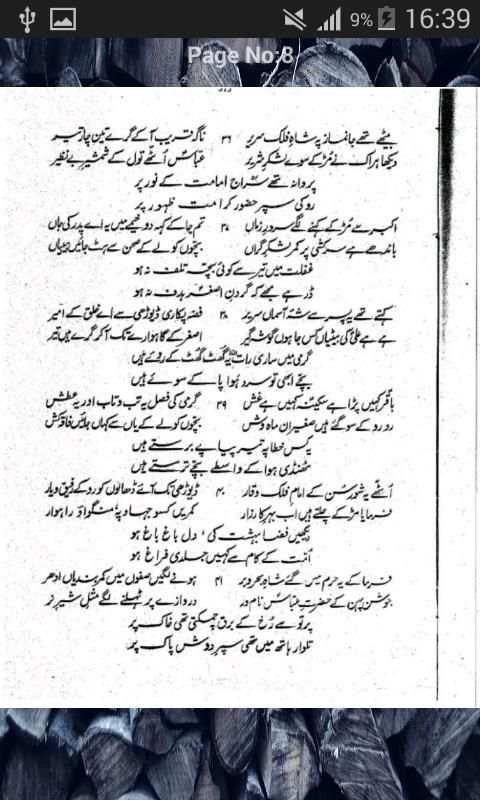 9% 16:39
Page No:8
بیٹھے تھے جانماز پہ شاہِ فلک سریر ۳۶ ناگہ قریب آ کے گرے تین چار تیر
دیکھا ہر اک نے مڑ کے سوئے لشکرِ شریر عباسؑ اٹھے تول کے شمشیرِ بے نظیر
پروانہ تھے سراجِ امامت کے نور پر
روکی سپر حضورِ کرامت ظہور پر
اکبر سے مڑ کے کہنے لگے سرورِ زماں ۳۷ تم جا کے کہہ دو خیمے میں یہ اے پدر کی جاں
باندھے ہے سرکشی پر کمر لشکرِ گراں بچوں کو لے کے صحن سے ہٹ جائیں بیبیاں
غفلت میں تیر سے کوئی بچہ تلف نہ ہو
ڈر ہے مجھے کہ گردنِ اصغر ہدف نہ ہو
کہتے تھے یہ پسر سے شہِ آسماں سریر ۳۸ فضہ پکاری ڈیوڑھی سے اے خلق کے امیر
ہے ہے علیؑ کی بیٹیاں کس جا ہوں گوشہ گیر اصغر کے گاہوارے تک آ کر گرے ہیں تیر
گرمی میں ساری رات یہ گھٹ گھٹ کے روئے ہیں
بچے ابھی تو سرد ہوا پا کے سوئے ہیں
باقر کہیں پڑا ہے سکینہ کہیں ہے غش ۳۹ گرمی کی فصل یہ تب و تاب اور یہ عطش
رو رو کے سو گئے ہیں صغیرانِ ماہ وش بچوں کو لے کے یاں سے کہاں جائیں فاقہ کش
یہ کس خطا پہ تیر پیاپے برستے ہیں
ٹھنڈی ہوا کے واسطے بچے ترستے ہیں
اٹھے یہ شور سن کے امامِ فلک وقار ۴۰ ڈیوڑھی تک آئے ڈھالوں کو رو کے رفیق و یار
فرمایا مڑ کے چلتے ہیں اب بہرِ کارزار کمریں کسو جہاد پہ منگواؤ راہوار
دیکھیں فضا بہشت کی دل باغ باغ ہو
امت کے کام سے کہیں جلدی فراغ ہو
فرما کے یہ حرم میں گئے شاہِ بحر و بر ۴۱ ہونے لگیں صفوں میں کمر بندیاں ادھر
جوشن پہن کے حضرتِ عباسؑ نامور دروازے پر ٹہلنے لگے مثلِ شیرِ نر
پرتو سے رخ کے برق چمکتی تھی خاک پر
تلوار ہاتھ میں تھی سپر دوشِ پاک پر